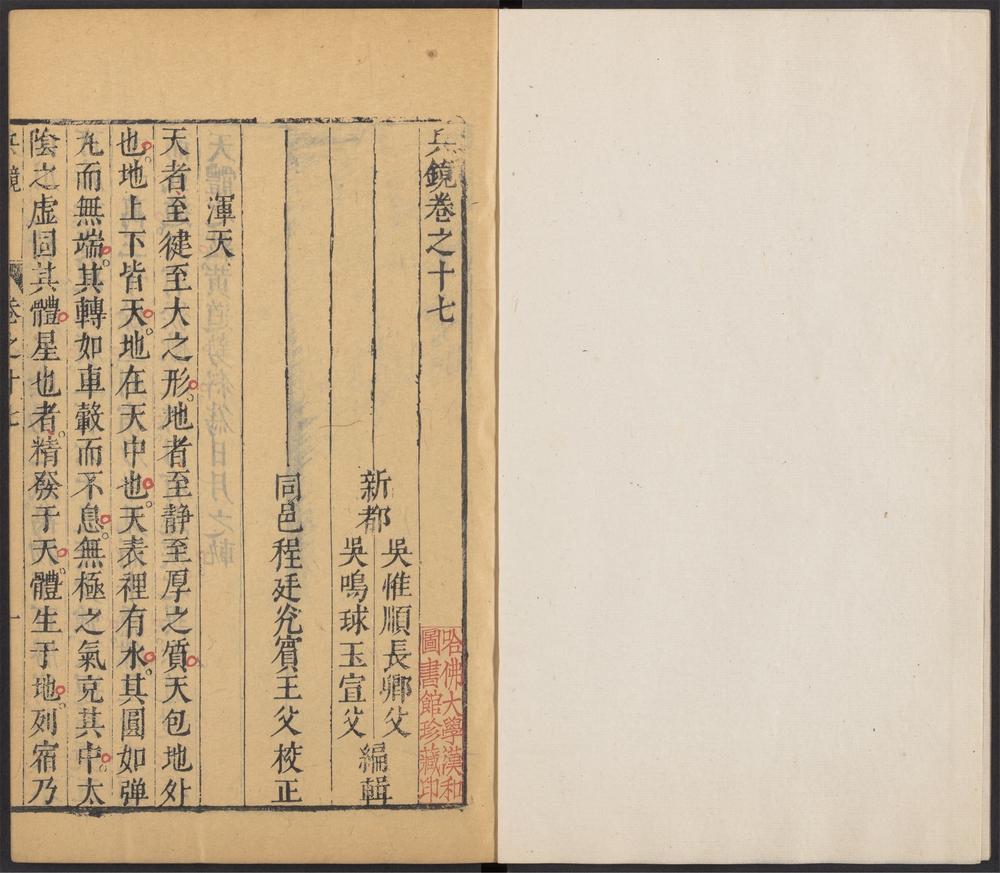 兵鏡卷之十七
新都
吳惟順長卿父
吳鳴球玉宣父
編輯
同邑程廷兖賓王父校正
渾天
天者至健至大之形地者至静至厚之質天包地外
也地上下皆天地在天中也天表裡有水其圓如弹
丸而無端其轉如車轂而不息無極之氣充其中太
陰之虛固其體星也者精發于天體生于地列宿乃
兵鏡
卷之十七
一
哈佛大學漢和
圖書館珍藏印